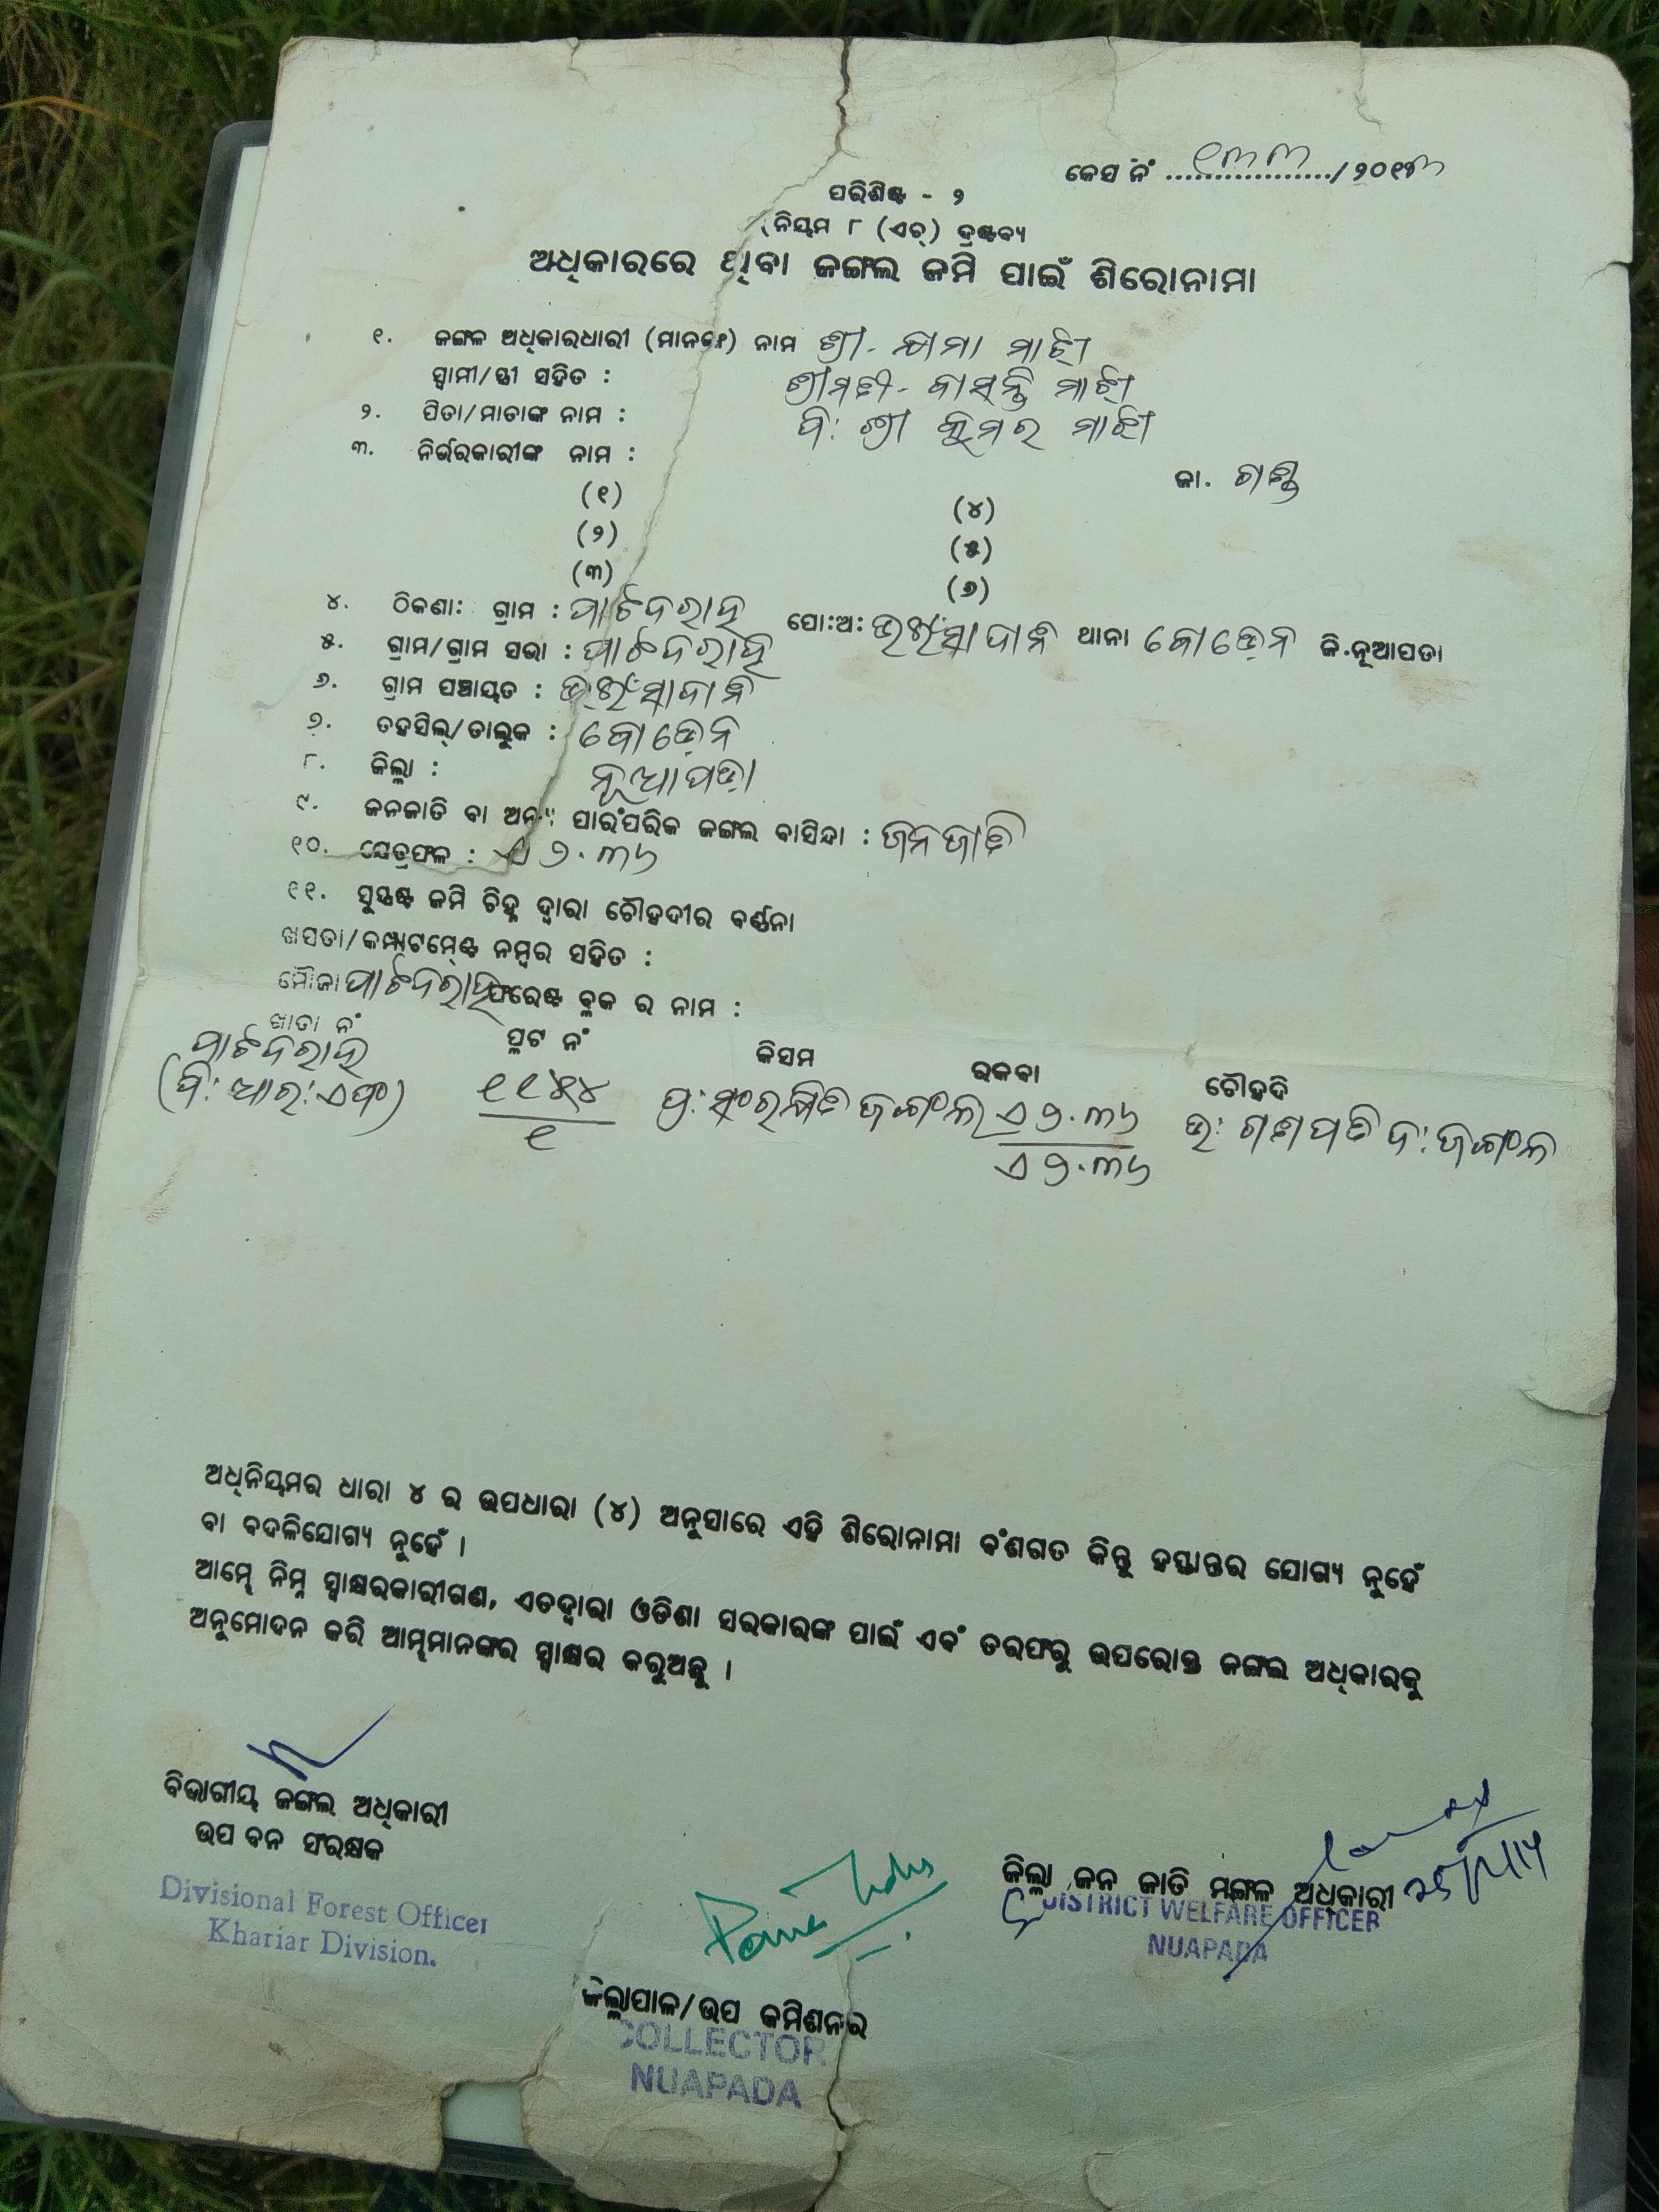 କେସ ନଂ ୧୩୩ /୨୦୧୩
ପରିଶିଷ୍ଟ - ୨
(ନିୟମ ୮ (ଏଚ୍) ଦ୍ରଷ୍ଟବ୍ୟ
ଅଧିକାରରେ ଥିବା ଜଙ୍ଗଲ ଜମି ପାଇଁ ଶିରୋନାମା
୧. ଜଙ୍ଗଳ ଅଧିକାରଧାରୀ (ମାନଙ୍କ) ନାମ ଶ୍ରୀ - କ୍ଷାମା ମାଝୀ
ସ୍ବାମୀ/ସ୍ତ୍ରୀ ସହିତ : ଶ୍ରୀମତୀ - ବାସନ୍ତି ମାଝୀ
୨. ପିତା/ମାତାଙ୍କ ନାମ : ପି: ଶ୍ରୀ କୁମର ମାଝୀ
୩. ନିର୍ଭରକାରୀଙ୍କ ନାମ :
ଜା. ଗଣ୍ଡ
(୧) (୪)
(୨) (୫)
(୩) (୬)
୪. ଠିକଣା: ଗ୍ରାମ : ପାଟଦରାହ ପୋ:ଅ: ଥାନା ବୋଡ଼େନ ଜି.ନୂଆପଡା
୫. ଗ୍ରାମ/ଗ୍ରାମ ସଭା : ପାଟଦରାହ
୬. ଗ୍ରାମ ପଞ୍ଚାୟତ :
୭. ତହସିଲ୍/ତାଲୁକ : ବୋଡ଼େନ
୮. ଜିଲ୍ଲା : ନୂଆପଡ଼ା
୯. ଜନଜାତି ବା ଅନ୍ୟ ପାରଂପରିକ ଜଙ୍ଗଲ ବାସିନ୍ଦା : ଜନଜାତି
୧୦. କ୍ଷେତ୍ରଫଳ : ଏ ୨.୩୬
୧୧. ସୁସ୍ପଷ୍ଟ ଜମି ଚିହ୍ନ ଦ୍ୱାରା ଚୌହଦୀର ବର୍ଣ୍ଣନା
ଖସଡା/କମ୍ପାଟମେଣ୍ଟ ନମ୍ବର ସହିତ :
ମୌଜା ପାଟଦରାହ ଫରେଷ୍ଟ ବ୍ଲକ ର ନାମ :
ଖାତା ନଂ ପ୍ଲଟ ନଂ କିସମ ରକବା ଚୌହଦି
ପାଟଦରାହ
(ପି: ଆର: ଏଫ) ୧୧୫୪ ପ୍ର: ସଂରକ୍ଷିତ ଜଙ୍ଗଲ ଏ ୨.୩୬ ଉ: ଗଣପତି ଦ: ଜଙ୍ଗଲ
୧ ଏ ୨.୩୬
ଅଧିନିୟମର ଧାରା ୪ ର ଉପଧାରା (୪) ଅନୁସାରେ ଏହି ଶିରୋନାମା ବଂଶଗତ କିନ୍ତୁ ହସ୍ତାନ୍ତର ଯୋଗ୍ୟ ନୁହେଁ
ବା ବଦଳିଯୋଗ୍ୟ ନୁହେଁ ।
ଆମ୍ଭେ ନିମ୍ନ ସ୍ୱାକ୍ଷରକାରୀଗଣ, ଏତଦ୍ୱାରା ଓଡିଶା ସରକାରଙ୍କ ପାଇଁ ଏବଂ ତରଫରୁ ଉପରୋକ୍ତ ଜଙ୍ଗଲ ଅଧିକାରକୁ
ଅନୁମୋଦନ କରି ଆମ୍ଭମାନଙ୍କର ସ୍ୱାକ୍ଷର କରୁଅଛୁ ।
ବିଭାଗୀୟ ଜଙ୍ଗଲ ଅଧିକାରୀ
ଉପ ବନ ସଂରକ୍ଷକ
Divisional Forest Officer
Khariar Division.
ଜିଲ୍ଲା ଜନ ଜାତି ମଙ୍ଗଳ ଅଧିକାରୀ
DISTRICT WELFARE OFFICER
NUAPADA
ଜିଲ୍ଲାପାଳ/ଉପ କମିଶନର
COLLECTOR
NUAPADA